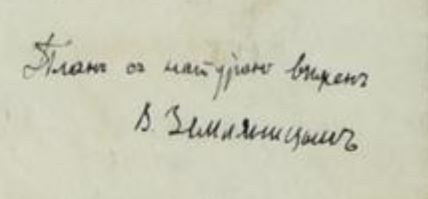 Планъ съ натурою вѣренъ
В. Земляницынъ